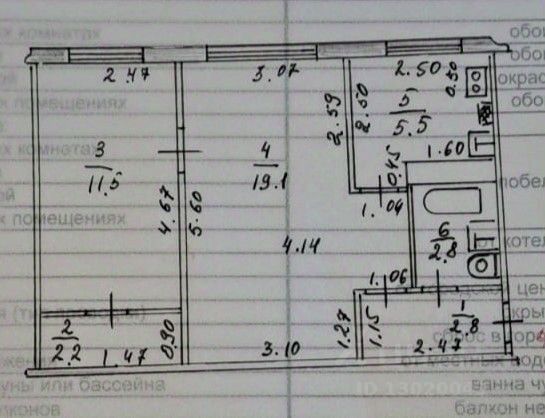 х комнатах
обо
обо
окрас
х помещениях
обо
х комнатах
побел
х помещениях
от котел
сброс в
от местных водо
уны или бассейна
ванна чу
лконов
балкон не
2.47
3.07
2.50
0.50
3
11.5
4
19.1
5
5.5
2.59
2.50
1.60
0.45
1.04
4.67
5.60
4.14
6
2.8
1.06
2
2.2
1.47
0.90
3.10
1.27
1.15
1
2.8
2.47